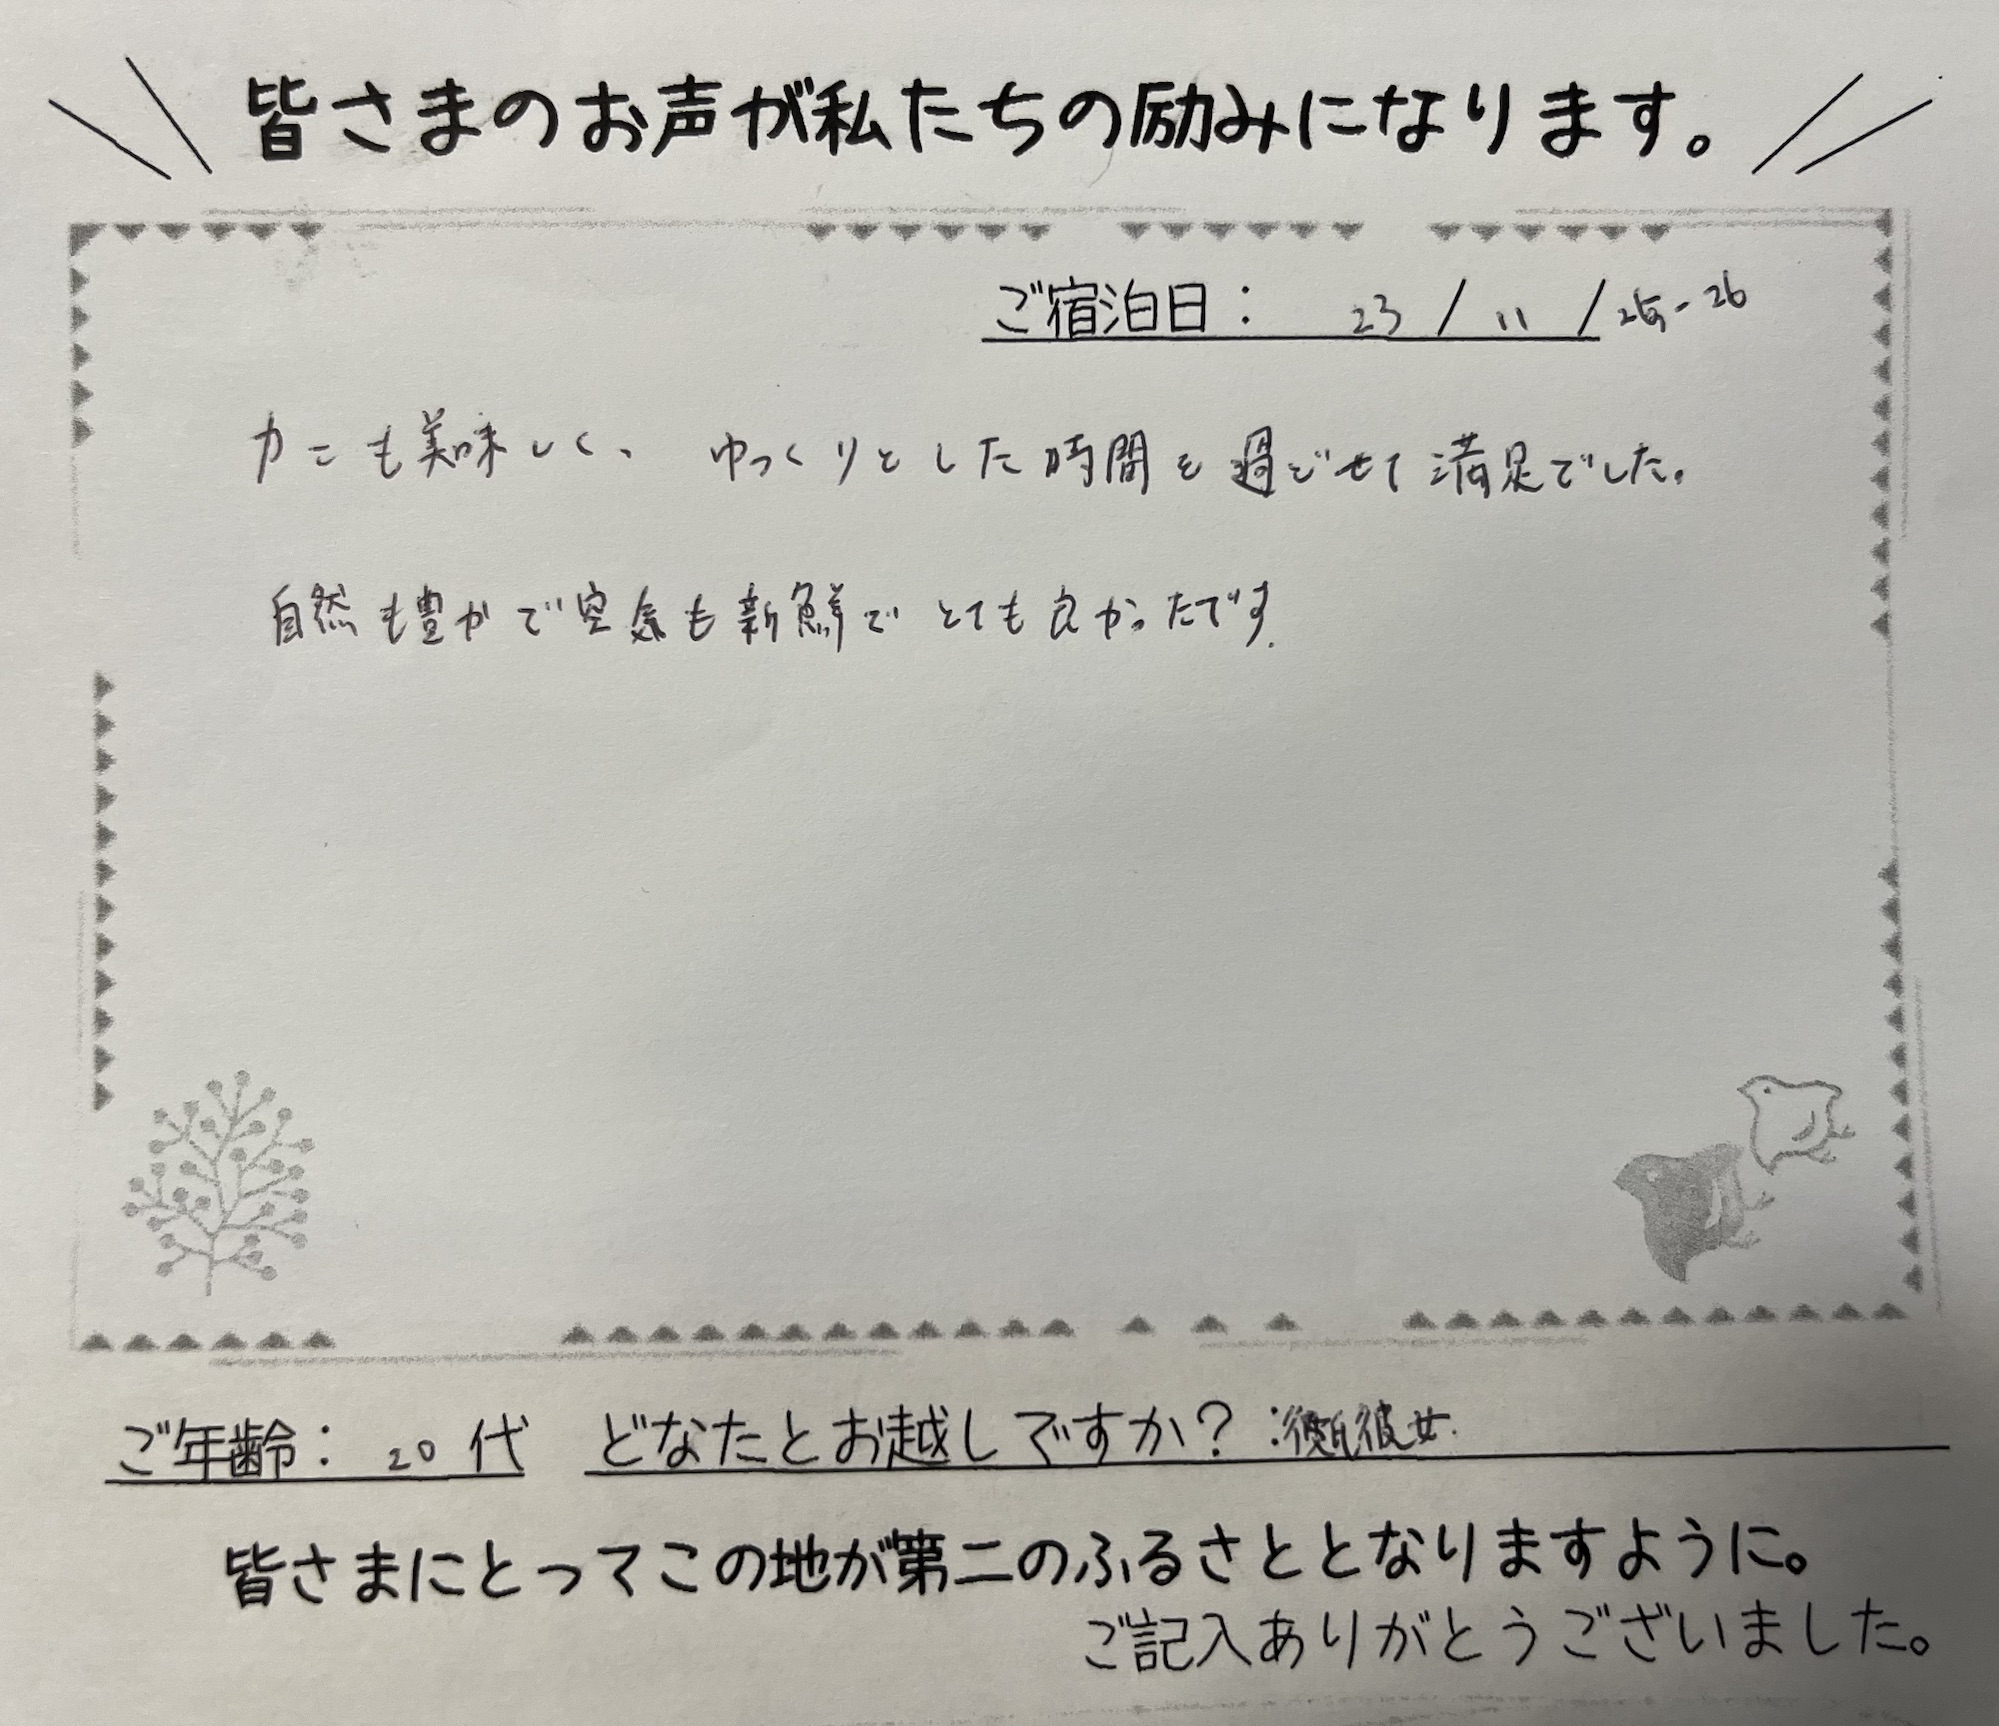 皆さまのお声が私たちの励みになります。
ご宿泊日： 23 / 11 / 25 - 26
カニも美味しく、ゆっくりとした時間を過ごせて満足でした。
自然も豊かで空気も新鮮でとても良かったです。
ご年齢： 20 代 どなたとお越しですか？： 彼女
皆さまにとってこの地が第二のふるさととなりますように。
ご記入ありがとうございました。